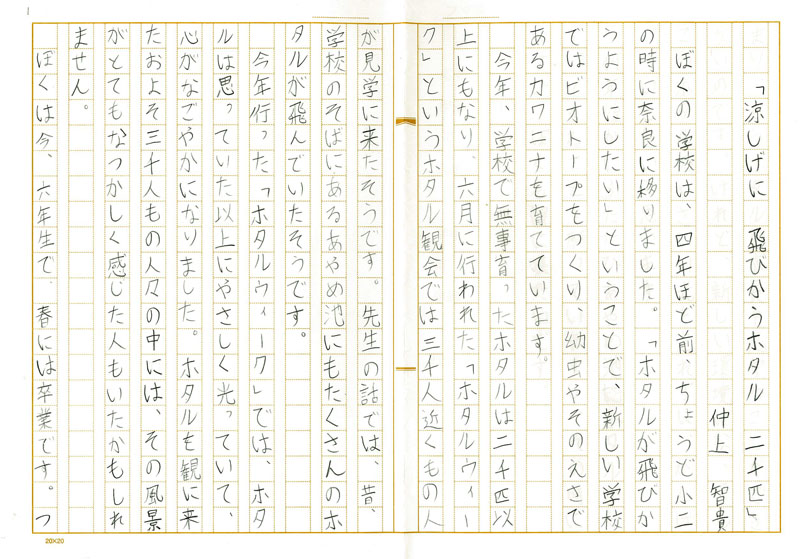 「涼しげに 飛びかうホタル 二千匹」
仲上 智貴
ぼくの学校は、四年ほど前、ちょうど小二
の時に奈良に移りました。「ホタルが飛びか
うようにしたい」ということで、新しい学校
ではビオトープをつくり、幼虫やそのえさで
あるカワニナを育てています。
今年、学校で無事育ったホタルは二千匹以
上にもなり、六月に行われた「ホタルウィー
ク」というホタル観会では三千人近くもの人
が見学に来たそうです。先生の話では、昔、
学校のそばにあるあやめ池にもたくさんのホ
タルが飛んでいたそうです。
今年行った「ホタルウィーク」では、ホタ
ルは思っていた以上にやさしく光っていて、
心がなごやかになりました。ホタルを観に来
たおよそ三千人もの人々の中には、その風景
がとてもなつかしく感じた人もいたかもしれ
ません。
ぼくは今、六年生で、春には卒業です。つ
20×20